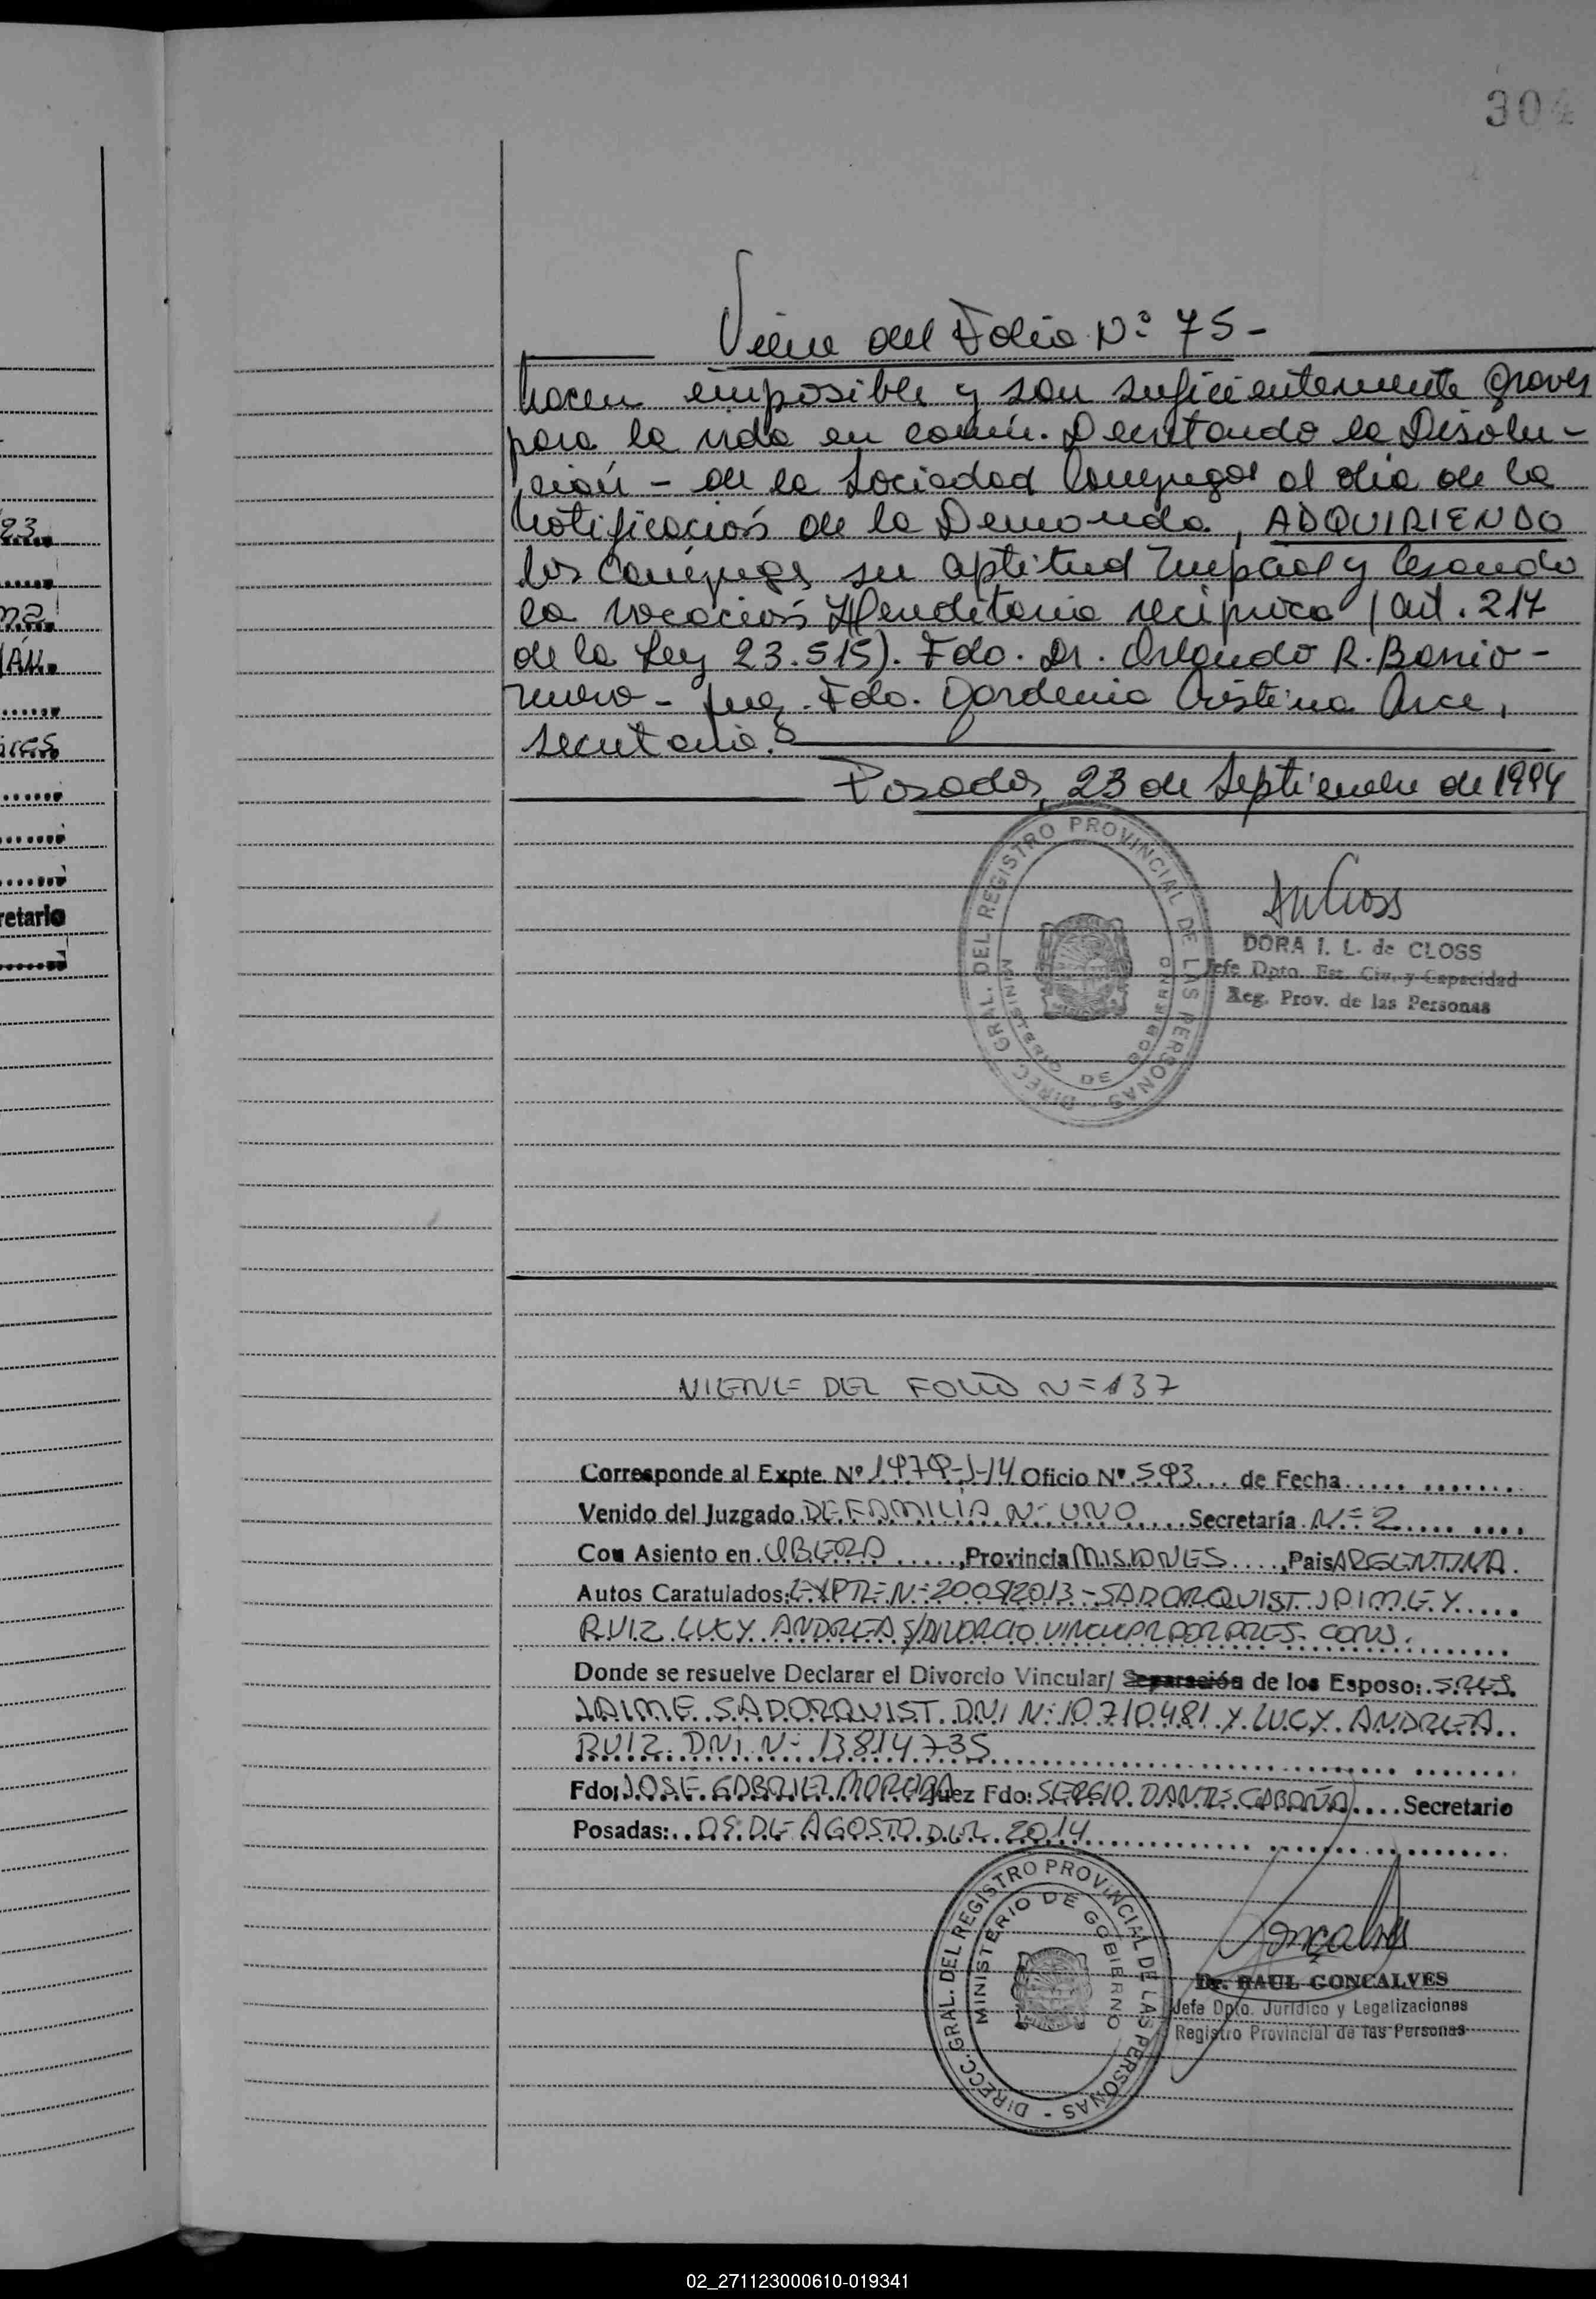 304
Viene del Folio Nº 75-
hacen imposible y son suficientemente graves
para la vida en común. Decretando la Disolu-
ción - de la Sociedad Conyugal al día de la
Notificación de la Demanda, ADQUIRIENDO
los Conyuges su aptitud Nupcial y Cesando
la vocación Hereditaria reciproca (art. 217
de la Ley 23.515). Fdo. Dr. Orlando R. Barrio-
nuevo - Juez. Fdo. Gardenia Cristina Arce,
secretaria.
Posadas, 23 de Septiembre de 1994
DIREC. GRAL. DEL REGISTRO PROVINCIAL DE LAS PERSONAS -
MINISTERIO DE GOBIERNO
DORA I. L. de CLOSS
Jefe Dpto. Est. Civ. y Capacidad
Reg. Prov. de las Personas
VIENE DEL FOLIO N=137
Corresponde al Expte. Nº 1979-J-14 Oficio Nº 593 de Fecha
Venido del Juzgado DE FAMILIA N= UNO Secretaría N=2
Con Asiento en OBERA, Provincia MISIONES, Pais ARGENTINA.
Autos Caratulados: EXPTE N= /2013 - SADORQUIST JAIME Y
RUIZ LUCY ANDREA S/DIVORCIO VINCULAR POR PRES. CONJ.
Donde se resuelve Declarar el Divorcio Vincular/ Separación de los Esposo: SRES.
JAIME SADORQUIST DNI N=10710481 Y LUCY ANDREA
RUIZ DNI N= 13814735
Fdo: JOSE GABRIEL MOREIRA Juez Fdo: SERGIO DANTE CABAÑA Secretario
Posadas: 09 DE AGOSTO DEL 2014
DIRECC. GRAL. DEL REGISTRO PROVINCIAL DE LAS PERSONAS -
MINISTERIO DE GOBIERNO
Goncalves
Dr. RAUL GONCALVES
Jefe Dpto. Jurídico y Legalizaciones
Registro Provincial de las Personas
23
ÁN.
retario
02_271123000610-019341